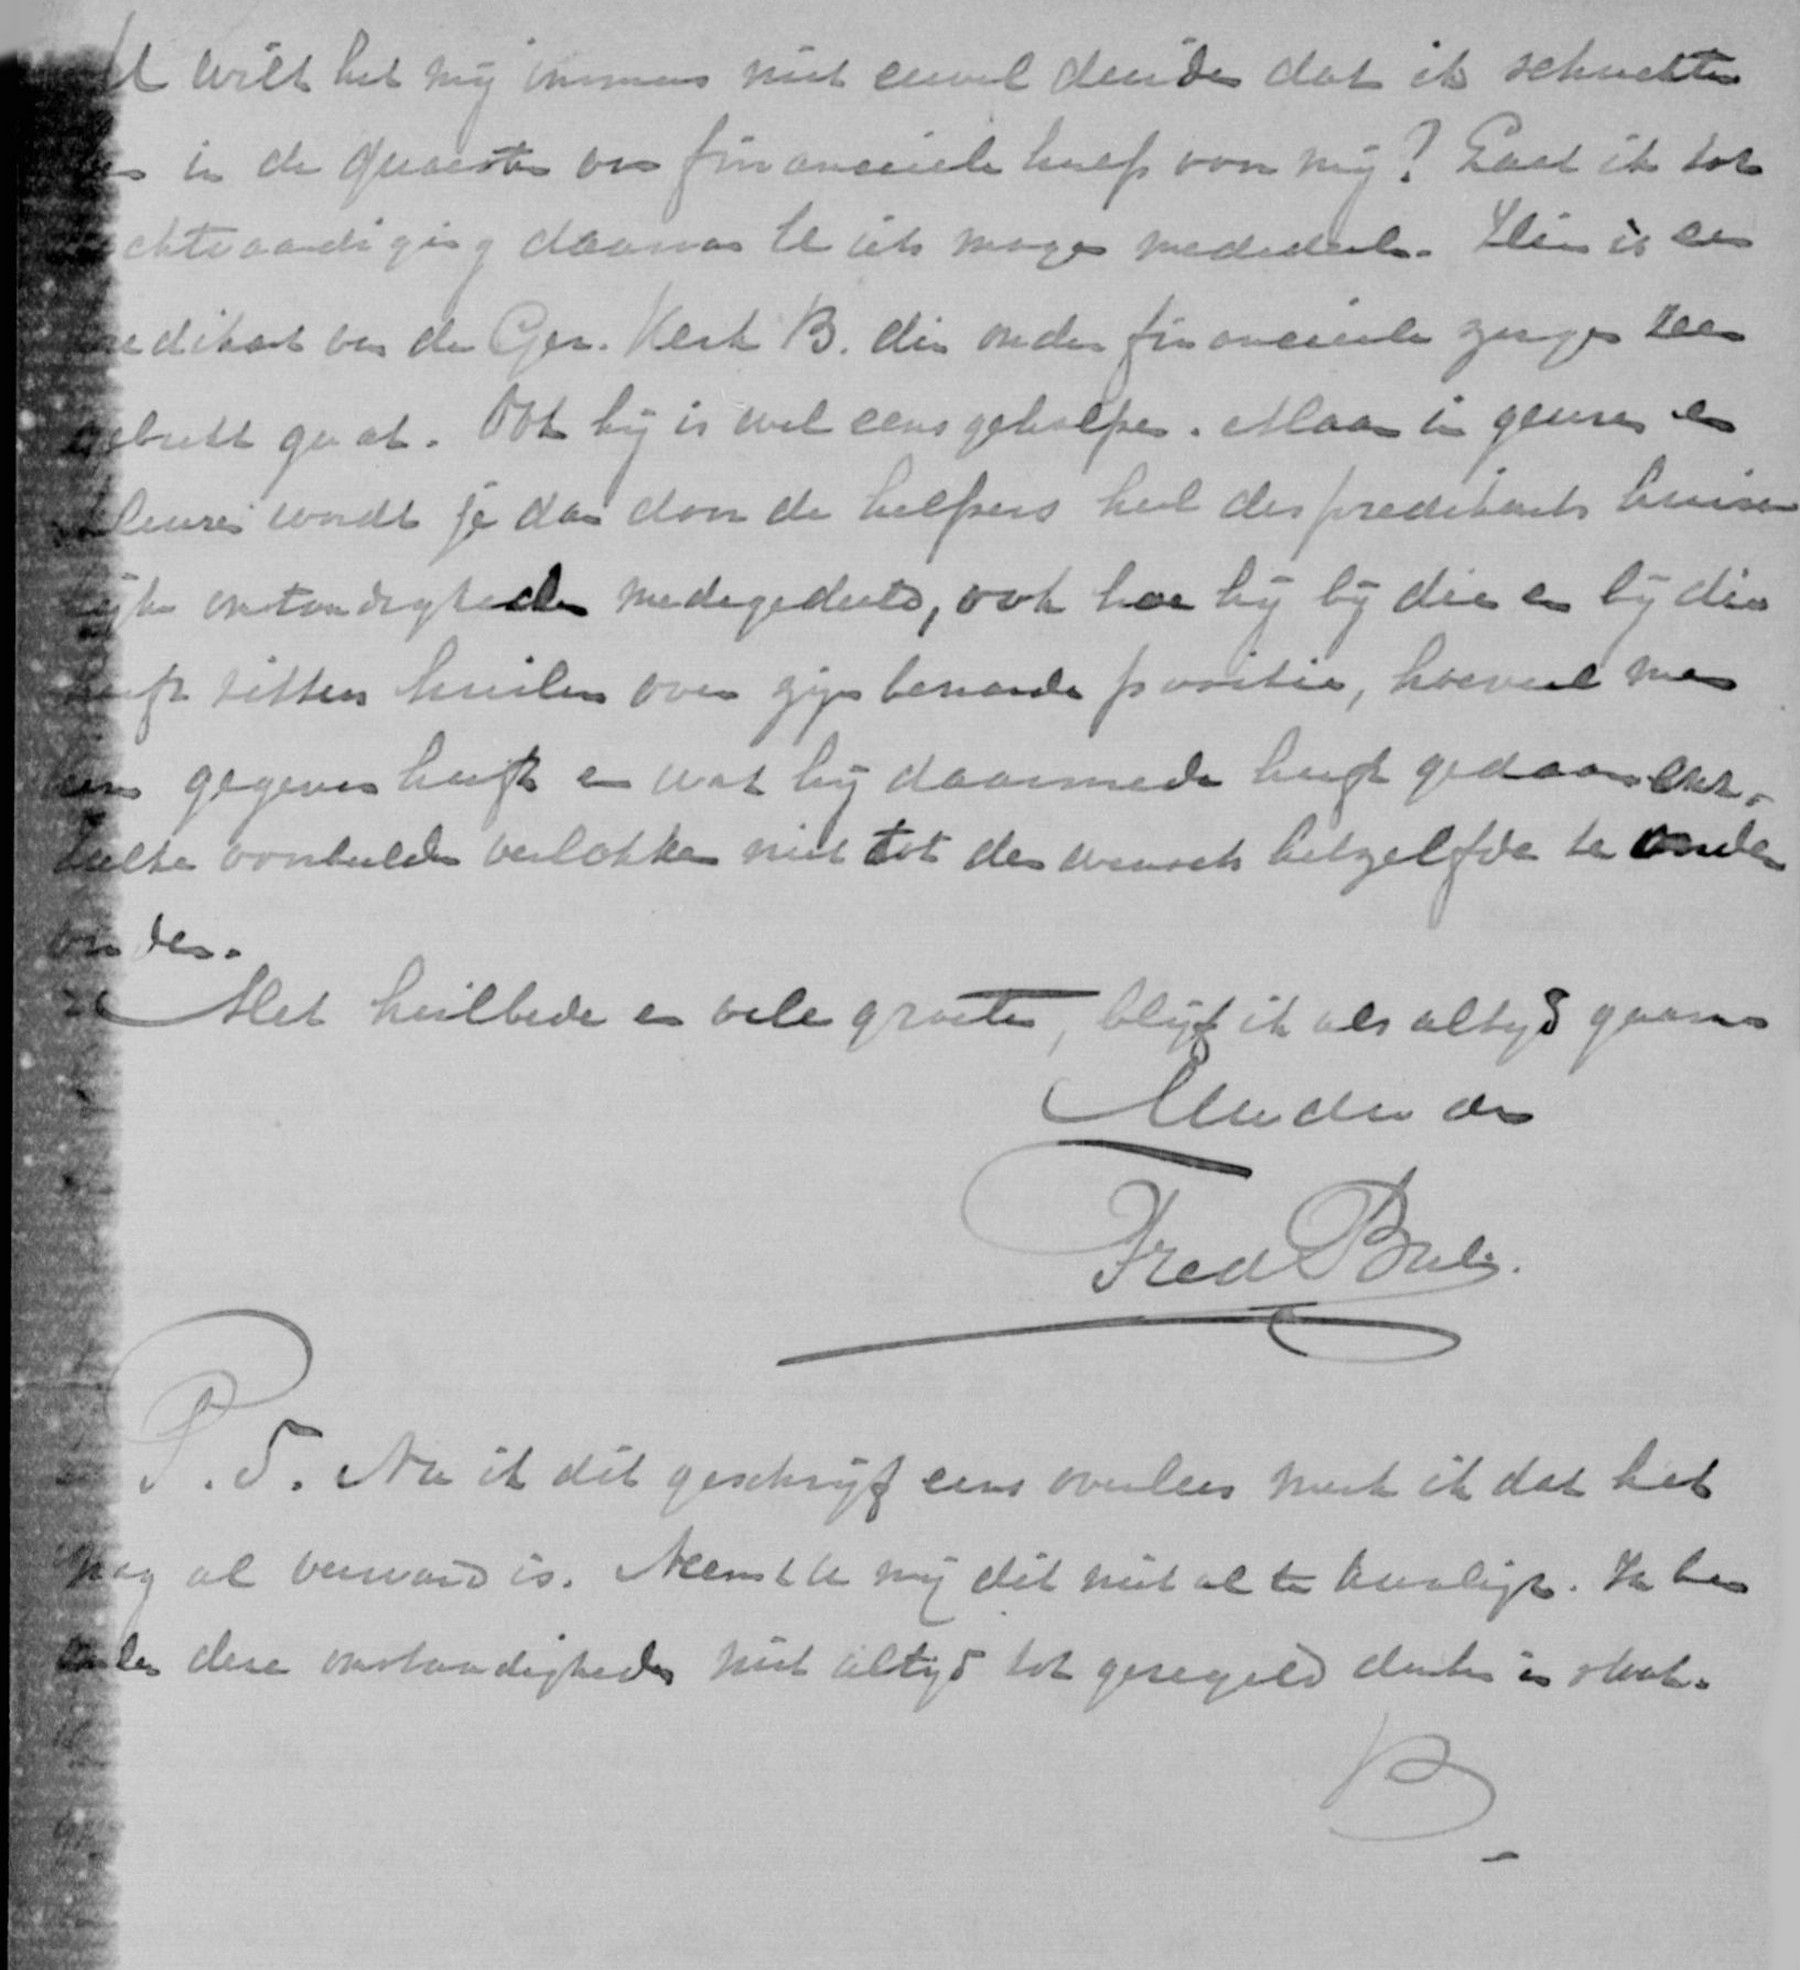 U wilt het mij immers niet euvel duiden dat ik schuchter
ben in de quaestie van financieele hulp voor mij? Laat ik tot
rechtvaardiging daarvan U iets mogen mededeelen. Hier is een
predikant van de Ger. Kerk B. die onder financieele zorgen zeer
gebukt gaat. Ook hij is wel eens geholpen. Maar in geuren en
kleuren wordt je dan door de helpers heel des predikants huise-
lijke omstandigheden medegedeeld, ook hoe hij bij die en bij die
heeft zitten huilen over zijn benarde positie, hoeveel men
hem gegeven heeft en wat hij daarmede heeft gedaan enz.
Zulke voorbeelden verlokken niet tot den wensch hetzelfde te onder
vinden.
Met heilbede en vele groeten, blijf ik als altijd gaarne
Uw dw dr
Fred
P.S. Nu ik dit geschrijf eens overlees merk ik dat het
nog al verward is. Neemt U mij dit niet al te kwalijk. Ik ben
onder deze omstandigheden niet altijd tot geregeld denken in staat.
B